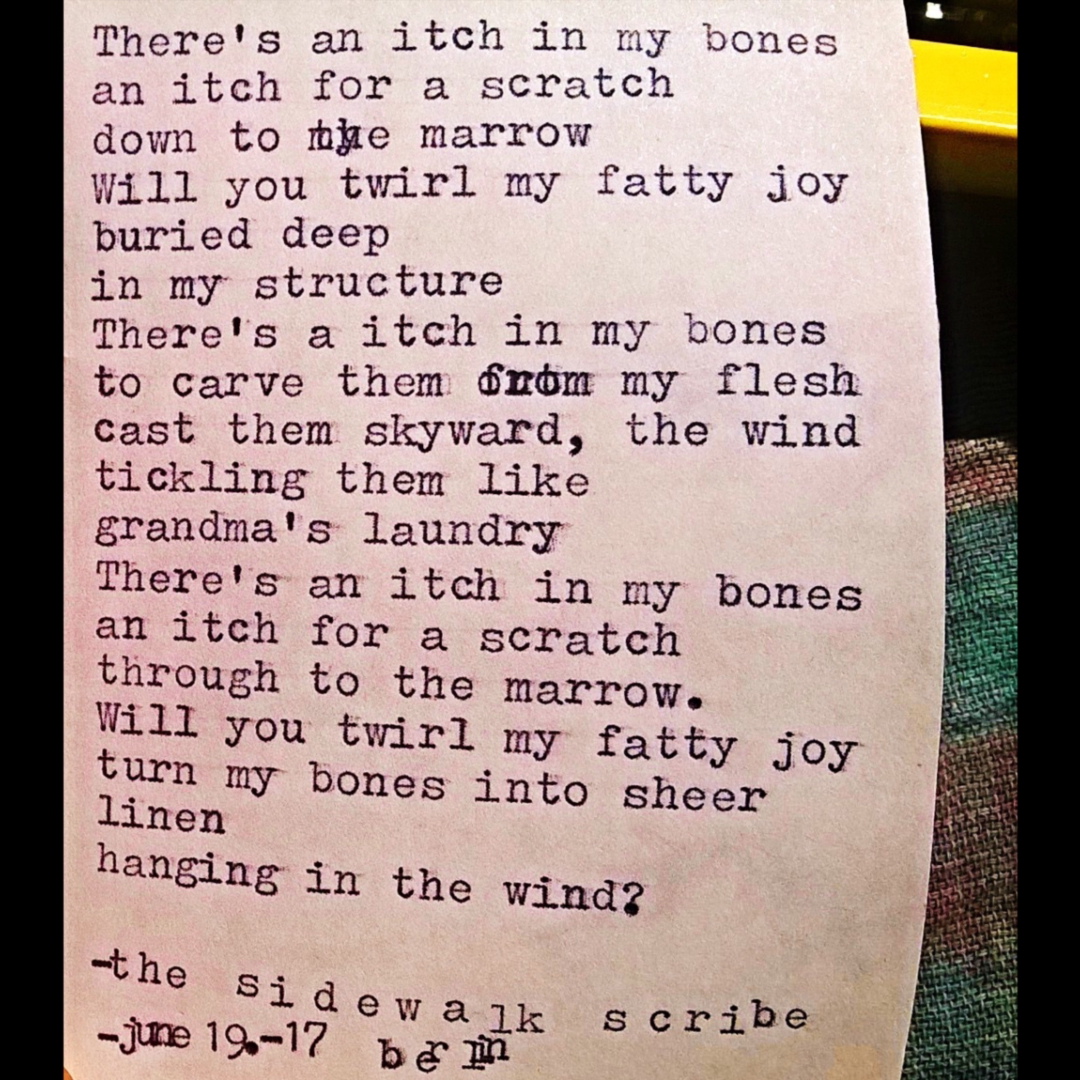 There's an itch in my bones
an itch for a scratch
down to the marrow
Will you twirl my fatty joy
buried deep
in my structure
There's a itch in my bones
to carve them from my flesh
cast them skyward, the wind
tickling them like
grandma's laundry
There's an itch in my bones
an itch for a scratch
through to the marrow.
Will you twirl my fatty joy
turn my bones into sheer
linen
hanging in the wind?
-the sidewalk scribe
-june 19.-17